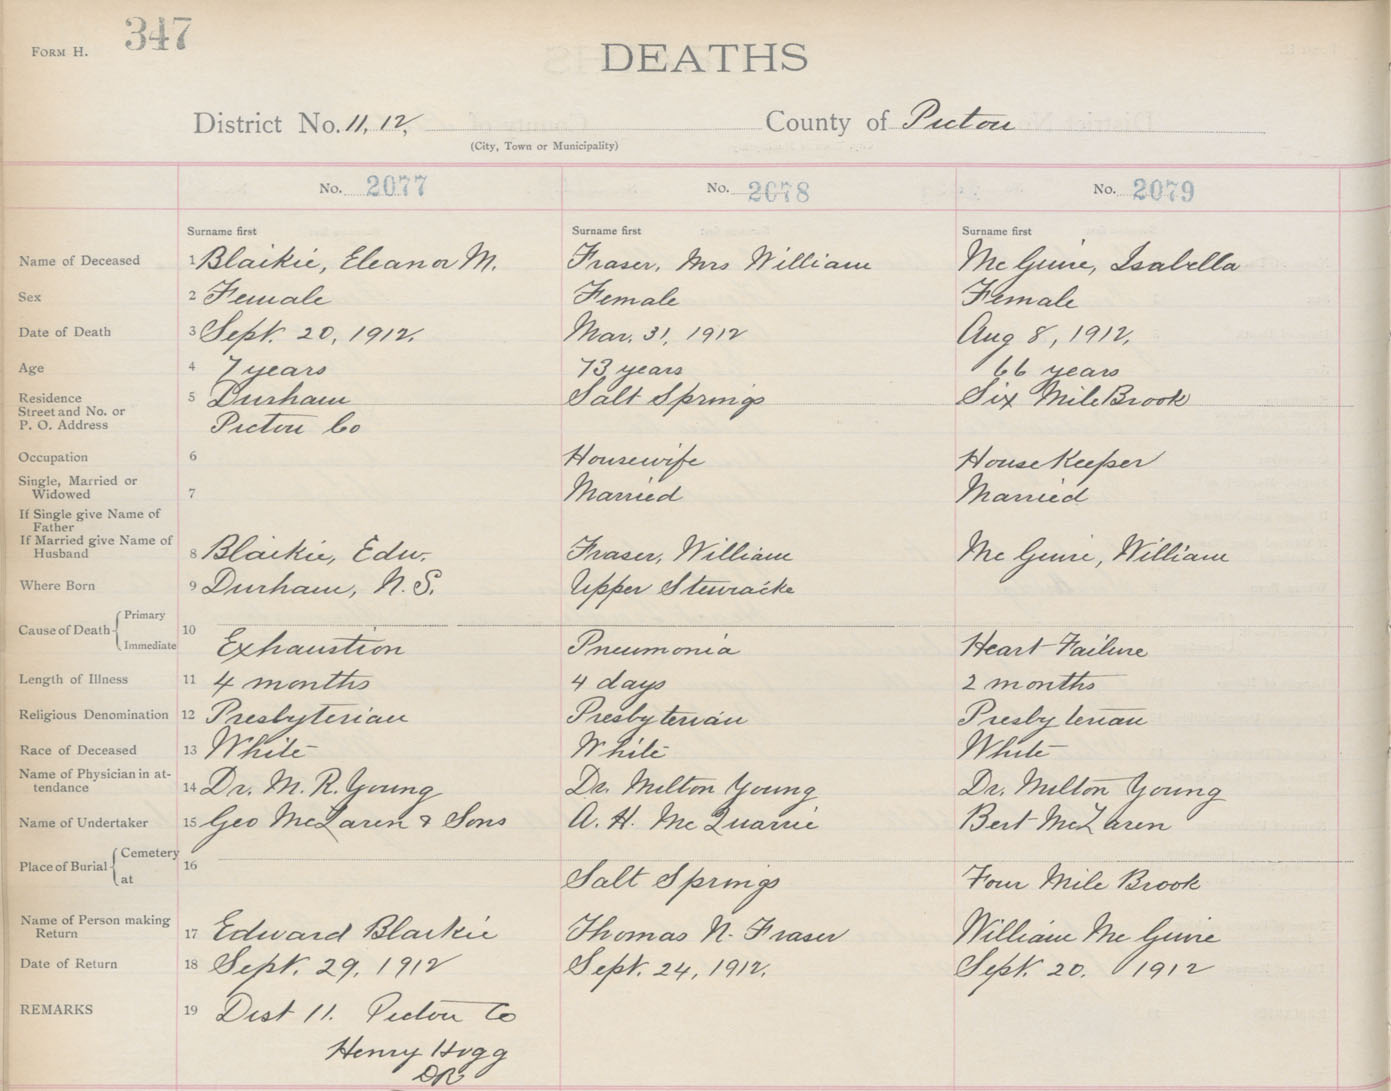 FORM H. 347
DEATHS
District No. 11, 12, County of Pictou
(City, Town or Municipality)
No. 2077 No. 2078 No. 2079
Surname first Surname first Surname first
Name of Deceased 1 Blaikie, Eleanor M. Fraser, Mrs William McGuire, Isabella
Sex 2 Female Female Female
Date of Death 3 Sept. 20, 1912. Mar. 31, 1912 Aug 8, 1912.
Age 4 7 years 73 years 66 years
Residence 5 Durham Salt Springs Six Mile Brook
Street and No. or
P. O. Address Pictou Co
Occupation 6 Housewife House Keeper
Single, Married or
Widowed 7 Married Married
If Single give Name of
Father
If Married give Name of
Husband 8 Blaikie, Edw. Fraser, William McGuire, William
Where Born 9 Durham, N. S. Upper Stewiacke
Cause of Death Primary 10
Immediate Exhaustion Pneumonia Heart Failure
Length of Illness 11 4 months 4 days 2 months
Religious Denomination 12 Presbyterian Presbyterian Presbyterian
Race of Deceased 13 White White White
Name of Physician in at-
tendance 14 Dr. M. R. Young Dr. Milton Young Dr. Milton Young
Name of Undertaker 15 Geo McLaren & Sons A. H. McQuarrie Bert McLaren
Place of Burial Cemetery 16
at Salt Springs Four Mile Brook
Name of Person making
Return 17 Edward Blaikie Thomas N. Fraser William McGuire
Date of Return 18 Sept. 29, 1912 Sept. 24, 1912. Sept. 20. 1912
REMARKS 19 Dist 11. Pictou Co
Henry Hogg
DR